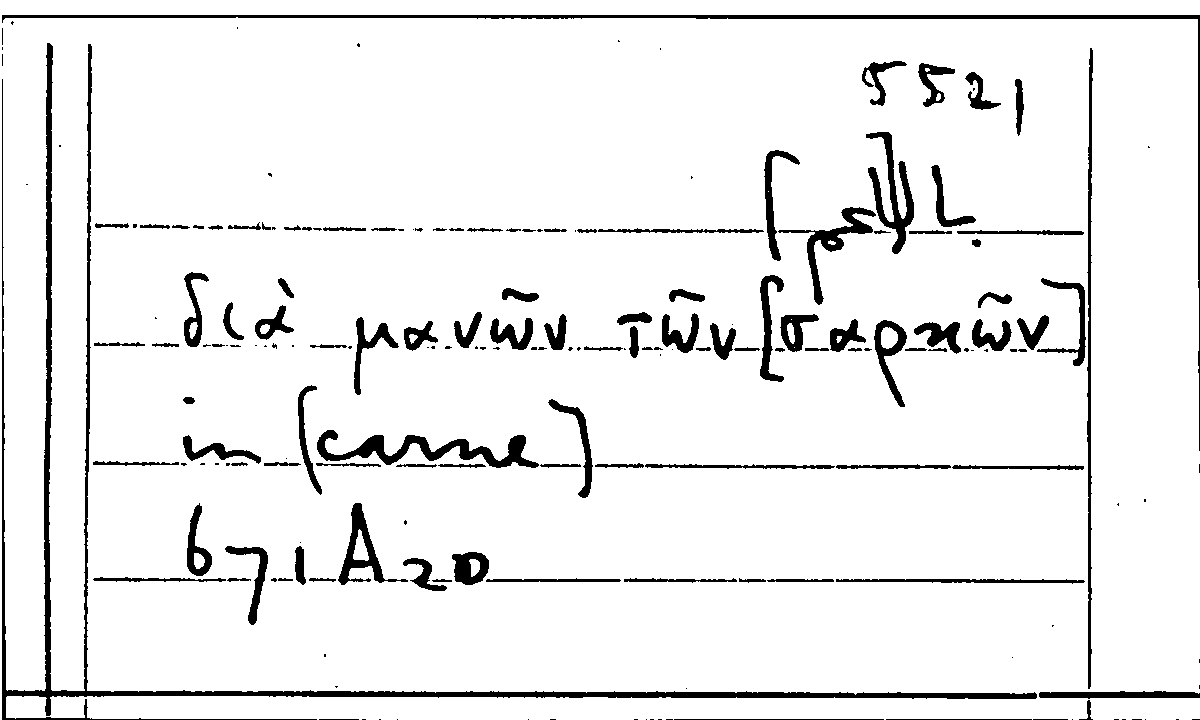 5521
διὰ̣ μανῶν τῶν [σαρκῶν]
in [carne]
671 A 20